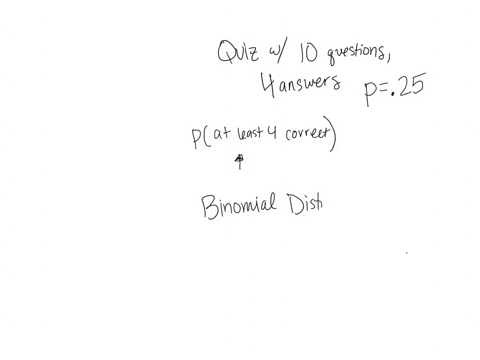 Quiz w/ 10 questions,
4 answers p=.25
P(at least 4 correct)
Binomial Dist